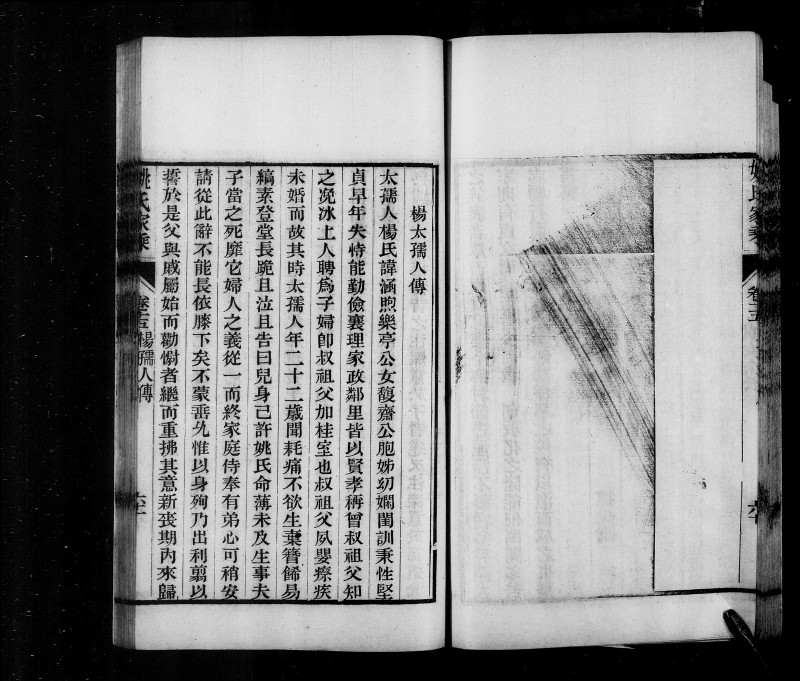 姚氏家乘
卷五
六
楊太孺人傳
太孺人楊氏諱涵煦樂亭公女馥齋公胞姊幼嫻閨訓秉性堅
貞早年失恃能勤儉襄理家政鄰里皆以賢孝稱曾叔祖父知
之浼冰上人聘爲子婦卽叔祖父加桂室也叔祖父夙嬰瘵疾
未婚而故其時太孺人年二十二歲聞耗痛不欲生棄簪餙易
縞素登堂長跪且泣且告曰兒身已許姚氏命薄未及生事夫
子當之死靡它婦人之義從一而終家庭侍奉有弟心可稍安
請從此辭不能長依膝下矣不蒙垂允惟以身殉乃出利翦以
誓於是父與戚屬始而勸慰者繼而重拂其意新喪期內來歸
姚氏家乘
楊孺人傳